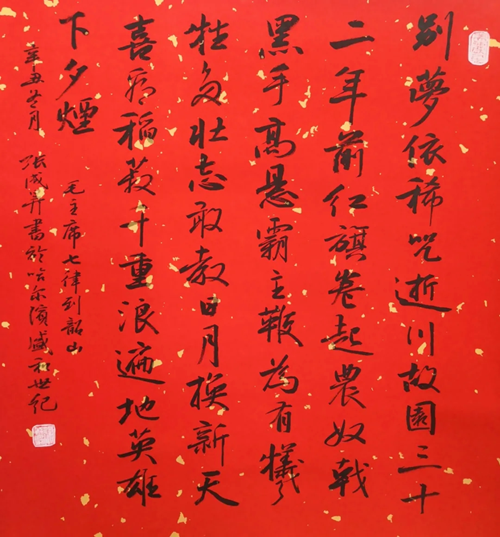 别夢依稀咒逝川故園三十
二年前红旗卷起農奴戟
黑手高悬霸主鞭為有犧
牲多壮志敢教日月换新天
喜看稻菽千重浪遍地英雄
下夕煙
毛主席七律到韶山
辛丑月 张成書於哈尔濱盛和世纪